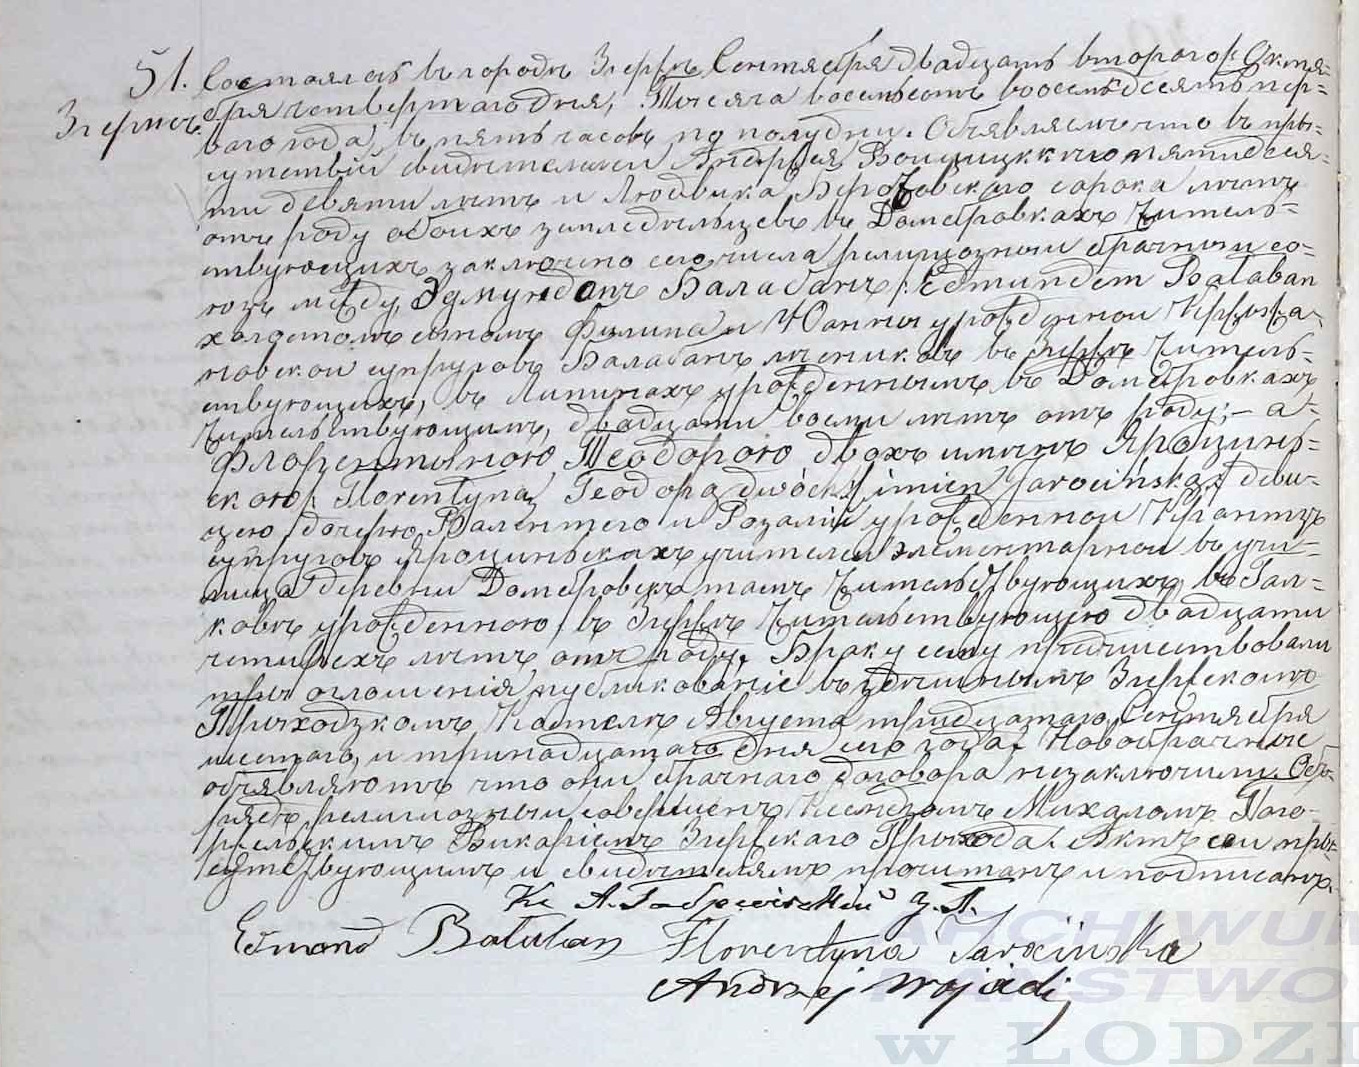 51. Состоялось въ городѣ Згержѣ Сентября двадцать второго /: Октя-
Згержъ. бря четвертаго дня, Тысяча восемьсотъ восемьдесятъ пер-
ваго года, въ пять часовъ по полудни. Объявляемъ что въ при-
сутствіи свидѣтелей Андрея Войцицкаго пятидеся-
ти девяти лѣтъ и Людвика Бержовскаго сорока лѣтъ
отъ роду обоихъ земледѣльцевъ въ Домбровкахъ житель-
ствующихъ заключено сего числа религіозный брачный со-
юзъ между Эдмундомъ Балабанъ /: Edmundem Bałaban
холостомъ сыномъ Филипа и Юанны урожденной
супруговъ Балабанъ въ Згержѣ житель-
ствующихъ, въ Липинахъ урожденнымъ въ Домбровкахъ
жительствующимъ, двадцати восьми лѣтъ отъ роду; - а -
Флорентыною Теодорою двохъ именъ Яроцинь-
скою /: Florentyną Теодорą dwóch imion Jarocińską :/ дѣви-
цею дочерью Валентего и Розаліи урожденной Кранцъ
супруговъ Яроциньскихъ учителей элементарной въ учи-
лища деревни Домбровкъ тамъ жительствующихъ, въ Гал-
ковѣ урожденною, въ Згержѣ жительствующею двадцати
четырехъ лѣтъ отъ роду. Браку сему предшествовали
три оглашенія публикованіе въ здѣшнымъ Згержскомъ
Приходзкомъ Костелѣ Августа тридцатаго, Сентября
шестаго, и тринадцатаго дня сего года. Новобрачные
объявляютъ что они брачнаго договора незаключили. Об-
рядъ религіозный совершенъ Ксендзомъ Михаломъ Пого-
рѣльскимъ Викаріемъ Згержскаго Прихода. Актъ сей при-
сутствующимъ и свидѣтелямъ прочитанъ и подписанъ.
Кс. А.
Edmond Bałaban Florentyna Jarocińska
Andrzej
ARCHIWUM
PAŃSTWO
w ŁODZI